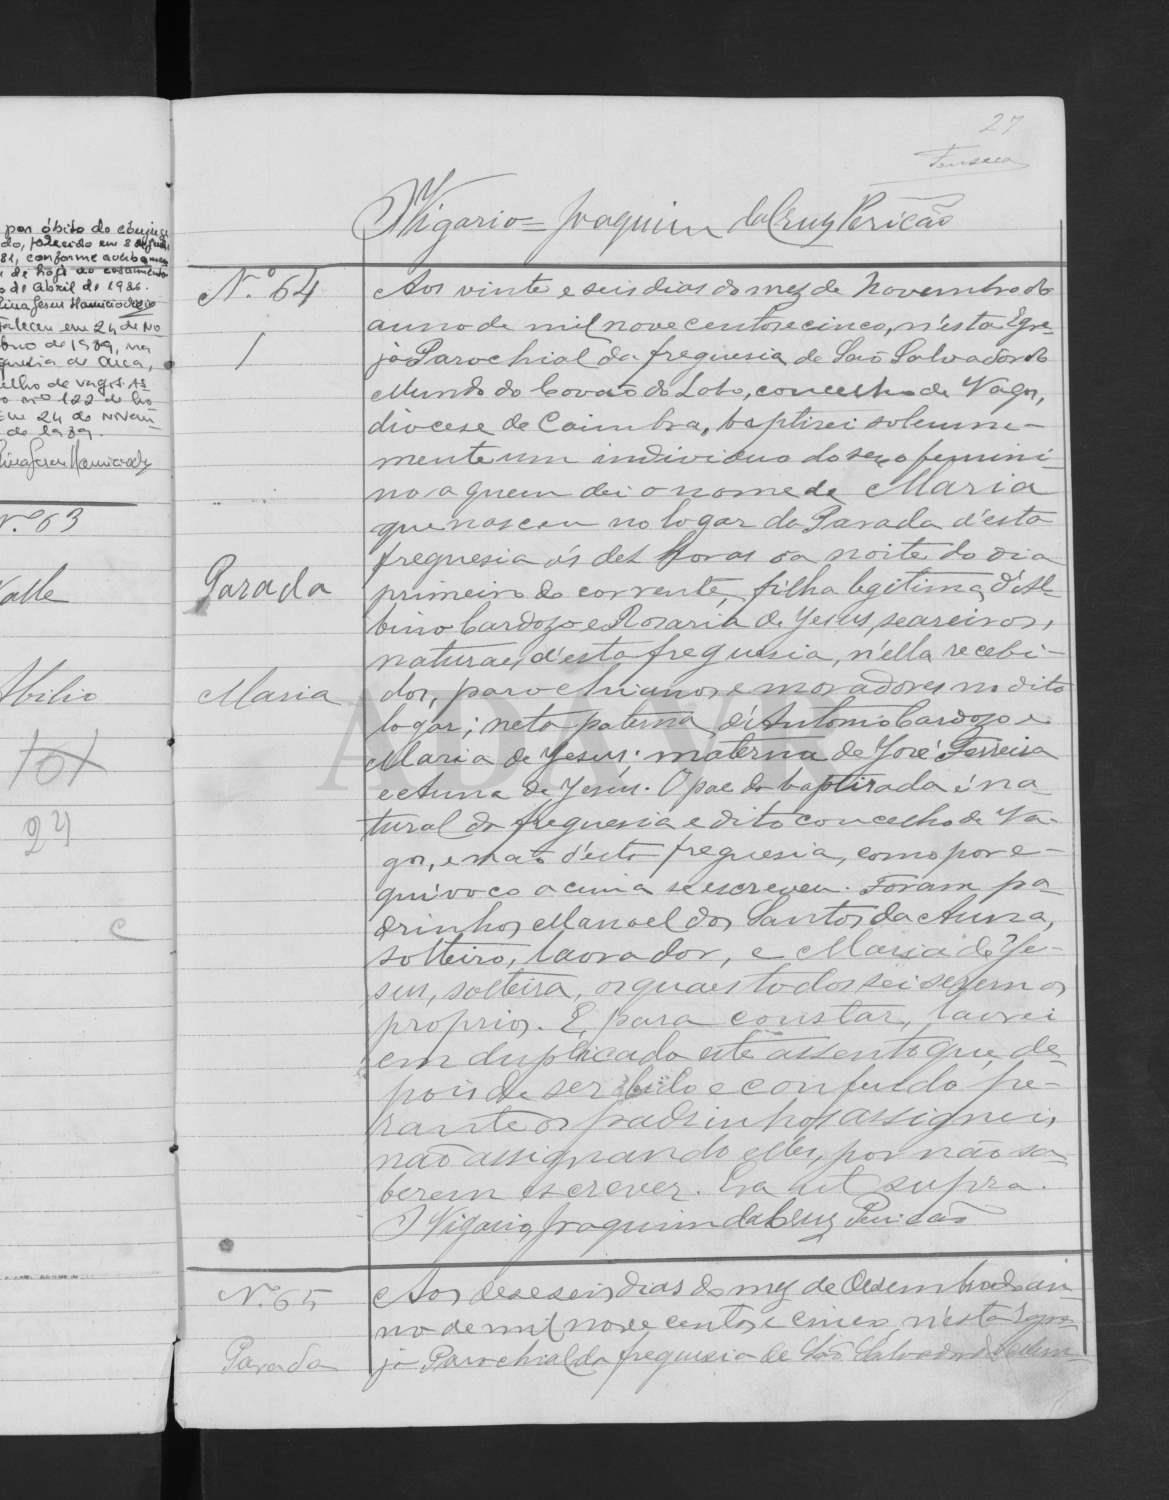 27
Fonseca
O Vigario = Joaquim da Cruz Pericão
por óbito do cônjuge
do, falecido em 2 de
81, conforme averbamen
de hoje ao casamento
de abril de 1986.
faleceu em 24 de No
bro de 1989, na
guesia de
culho de Vagos. As
nº 122 de ho
Em 24 de Novem
de 1989.
N.º 63
Valle
Abilio
24
N.º 64
1
Parada
Maria
Aos vinte e seis dias do mez de Novembro do
anno de mil nove centos e cinco, n'esta Egre-
ja Parochial da freguesia de São Salvador do
Mundo do Covão do Lobo, concelho de Vagos,
diocese de Coimbra, baptisei solemne-
mente um individuo do sexo femini-
no a quem dei o nome de Maria
que nasceu no logar da Parada d'esta
freguesia ás dez horas da noite do dia
primeiro do corrente, filha legitima d'Al-
bino Cardozo e Rosaria de Jesus, seareiros,
naturaes d'esta freguesia, n'ella recebi-
dos, parochianos e moradores no dito
logar; neta paterna d'Antonio Cardozo e
Maria de Jesus; materna de José Ferreira
e Anna de Jesus. O pae da baptisada é na
tural da freguesia e dito concelho de Va-
gos, e não d'esta freguesia, como por e-
quivoco acima se escreveu. Foram pa
drinhos Manoel dos Santos da Anna,
solteiro, lavrador, e Maria de Je-
sus, solteira, os quaes todos sei serem os
proprios. E, para constar, lavrei
em duplicado este assento que, de-
pois de ser lido e conferido pe-
rante os padrinhos assignei,
não assignando elles, por não sa-
berem escrever. Era ut supra.
O Vigario, Joaquim da Cruz Pericão
N.º 65
Parada
Aos deseseis dias do mez de Desembro do an
no de mil nove centos e cinco, n'esta Egre
ja Parochial da freguesia de São Salvador do Mun-
ADAVR